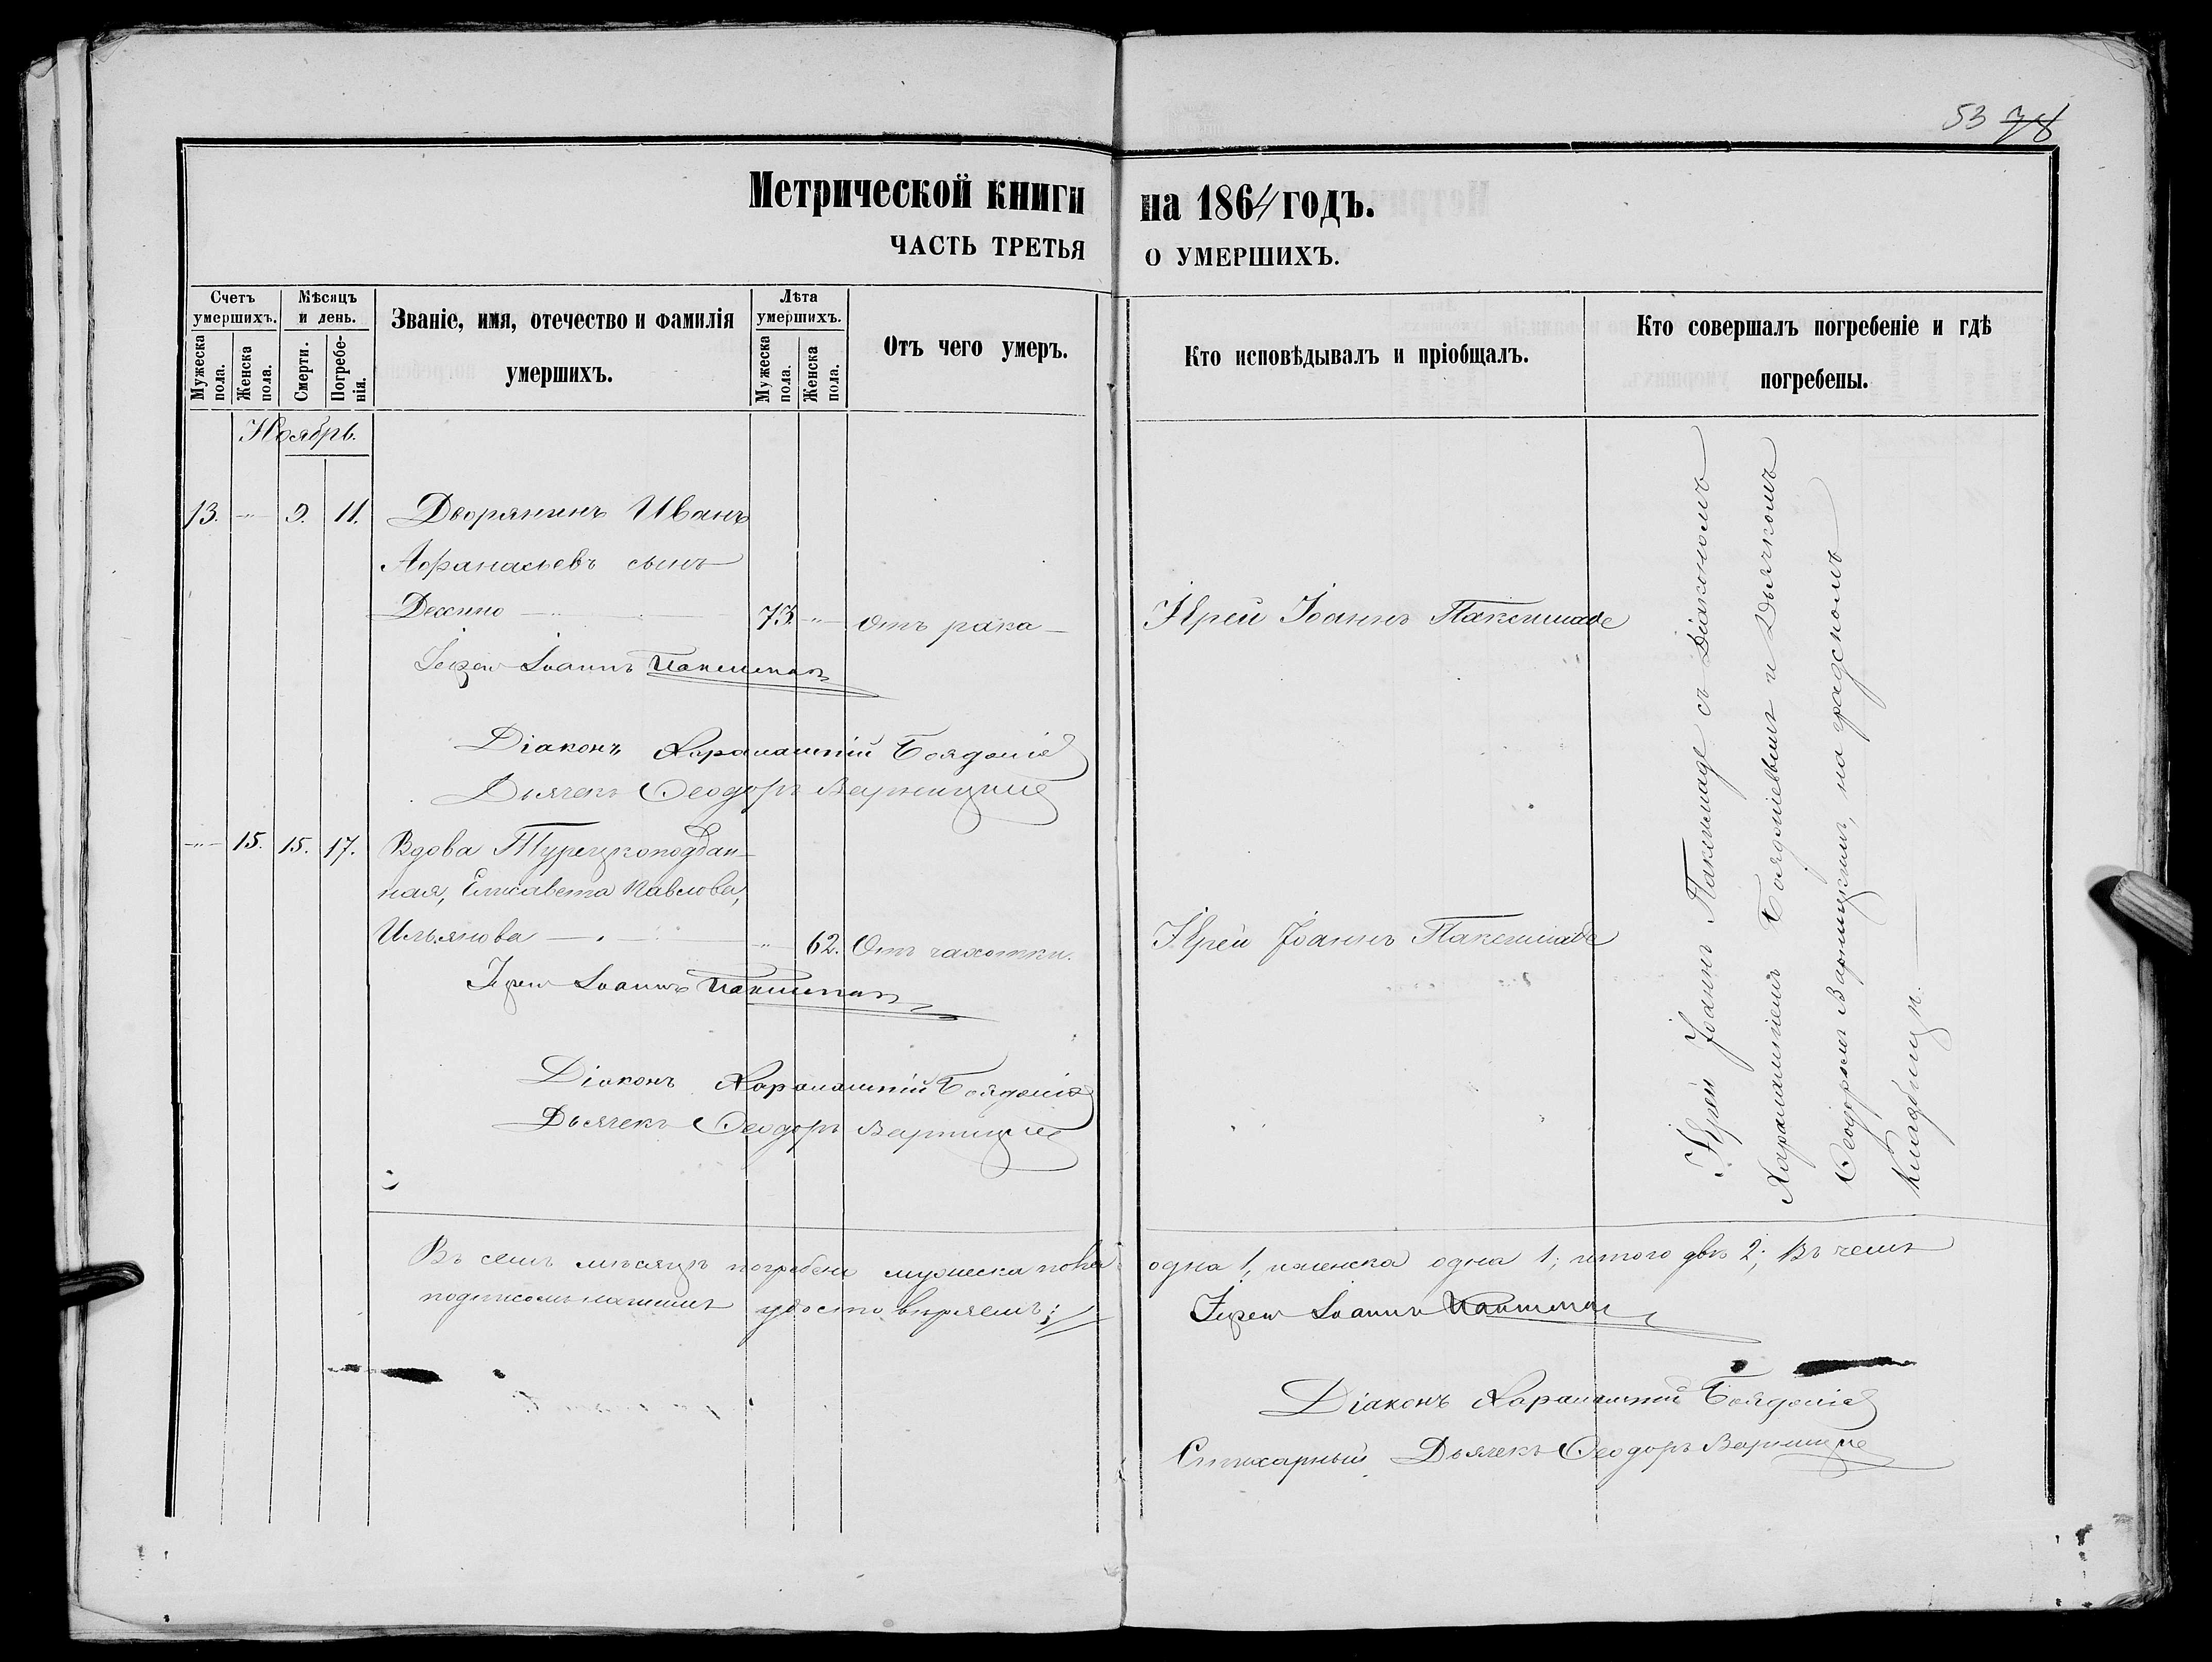 53 78
Метрической книги на 1864 годъ.
ЧАСТЬ ТРЕТЬЯ О УМЕРШИХЪ.
Счетъ умершихъ.
Мужеска пола.
Женска пола.
Мѣсяцъ и день.
Смерти.
Погребенія.
Званіе, имя, отечество и фамилія умершихъ.
Лѣта умершихъ.
Мужеска пола.
Женска пола.
Отъ чего умеръ.
Кто исповѣдывалъ и пріобщалъ.
Кто совершалъ погребеніе и гдѣ погребены.
Ноябрь.
13. -"- 9. 11. Дворянинъ Иванъ
Афанасьевъ сынъ
73. -"- Отъ рака
Іерей Іоаннъ
Іерей Іоаннъ
Діаконъ Харалампій
Дьячекъ Ѳеодоръ Варницкій
-"- 15. 15. 17. Вдова Турецкоподдан-
ная, Елисавета Павлова,
Ильянова -"- 62. Отъ чахотки.
Іерей Іоаннъ
Іерей Іоаннъ
Діаконъ Харалампій
Дьячекъ Ѳеодоръ Варницкій
Іерей Іоаннъ съ Діакономъ
Харалампіемъ и Дьячкомъ
Ѳеодоромъ Варницкимъ, на градскомъ
кладбищѣ.
Въ семъ мѣсяцѣ погребено мужеска пола одна 1, женска одна 1; итого двѣ 2; Въ чемъ
подписомъ нашимъ удостовѣряемъ:
Іерей Іоаннъ
Діаконъ Харалампій
Стихарный Дьячекъ Ѳеодоръ Варницкій